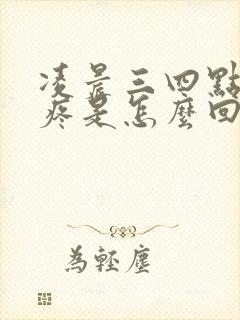 凌晨三四點
疼是怎麼回
為輕塵